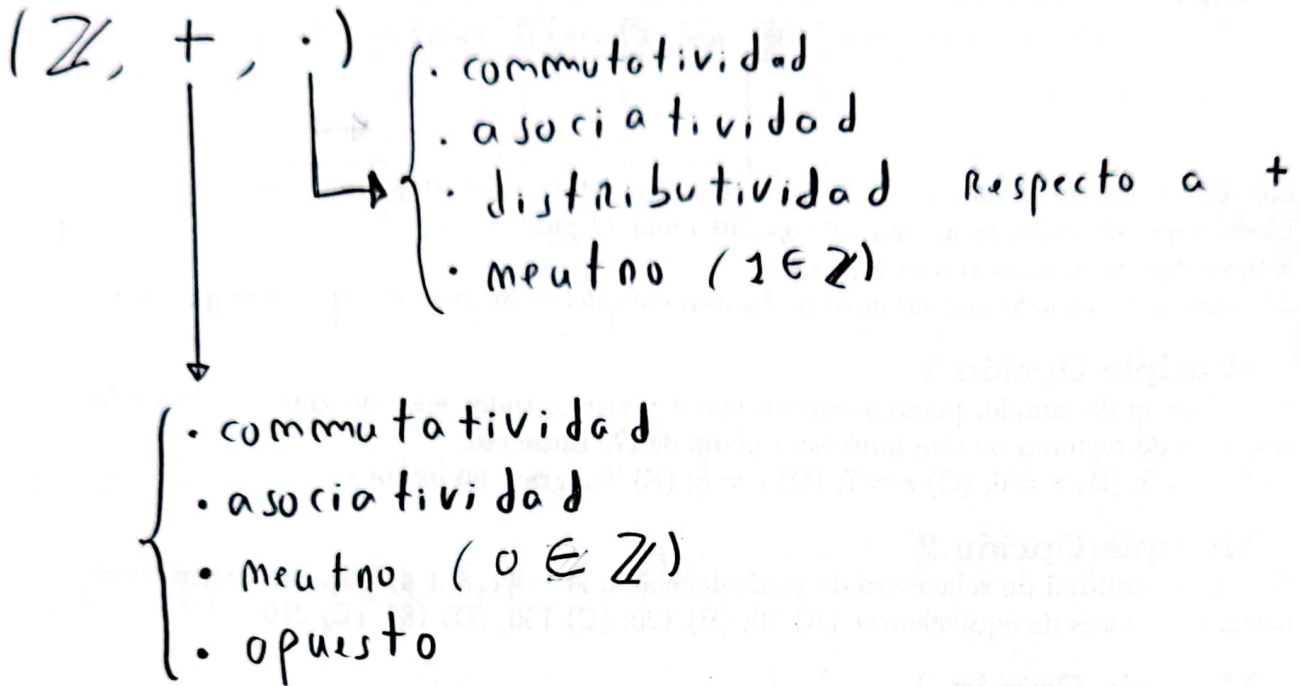 (ℤ, +, ·)
· commutatividad
· asociatividad
· distributividad respecto a +
· neutno (1 ∈ ℤ)
· commutatividad
· asociatividad
· neutno (0 ∈ ℤ)
· opuesto